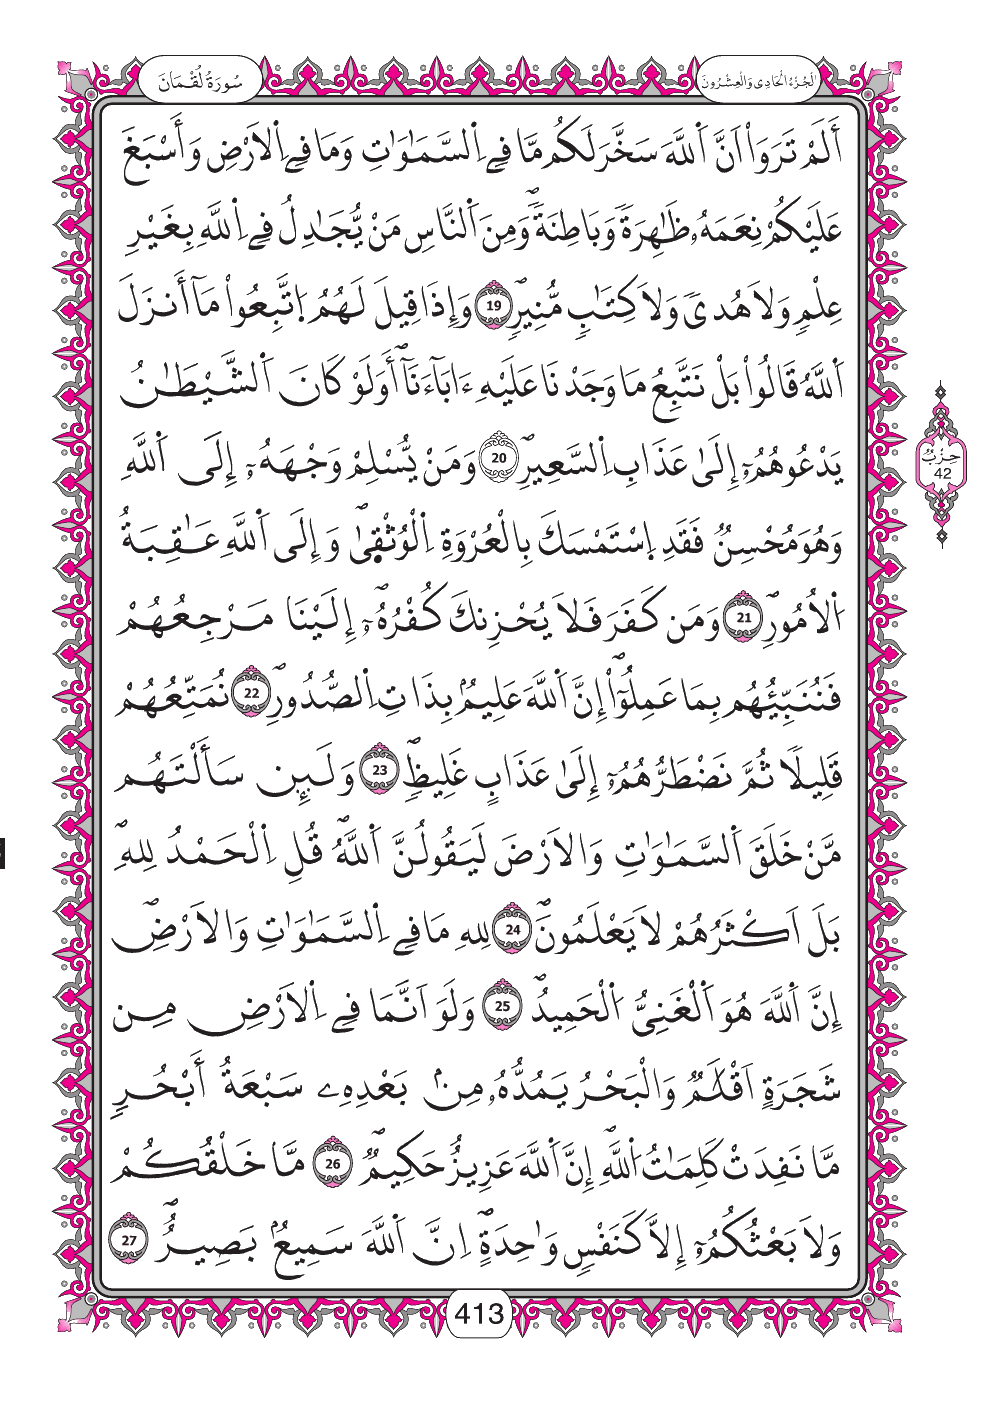 سُورَةُ لُقْمَانَ
اَلْجُزْءُ الْحَادِي وَالْعِشْرُونَ
أَلَمْ تَرَوَاْ اَنَّ اَ۬للَّهَ سَخَّرَ لَكُم مَّا فِے اِ۬لسَّمَٰوَٰتِ وَمَا فِے اِ۬لَارْضِ وَأَسْبَغَ
عَلَيْكُمْ نِعَمَهُۥ ظَٰهِرَةٗ وَبَاطِنَةٗۖ وَمِنَ اَ۬لنَّاسِ مَنْ يُّجَٰدِلُ فِے اِ۬للَّهِ بِغَيْرِ
عِلْمٖ وَلَا هُدىٗ وَلَا كِتَٰبٖ مُّنِيرٖۖ 19 وَإِذَا قِيلَ لَهُمُ اُ۪تَّبِعُواْ مَآ أَنزَلَ
اَ۬للَّهُ قَالُواْ بَلْ نَتَّبِعُ مَا وَجَدْنَا عَلَيْهِ ءَابَآءَنَآۖ أَوَلَوْ كَانَ اَ۬لشَّيْطَٰنُ
يَدْعُوهُمُۥٓ إِلَىٰ عَذَابِ اِ۬لسَّعِيرِۖ 20 وَمَنْ يُّسْلِمْ وَجْهَهُۥٓ إِلَى اَ۬للَّهِ
وَهُوَ مُحْسِنٞ فَقَدِ اِ۪سْتَمْسَكَ بِالْعُرْوَةِ اِ۬لْوُثْق۪ىٰ وَإِلَى اَ۬للَّهِ عَٰقِبَةُ
اُ۬لُامُورِۖ 21 وَمَن كَفَرَ فَلَا يُحْزِنكَ كُفْرُهُۥٓۖ إِلَيْنَا مَرْجِعُهُمْ
فَنُنَبِّئُهُم بِمَا عَمِلُوٓاْۖ إِنَّ اَ۬للَّهَ عَلِيمُۢ بِذَاتِ اِ۬لصُّدُورِۖ 22 نُمَتِّعُهُمْ
قَلِيلٗا ثُمَّ نَضْطَرُّهُمُۥٓ إِلَىٰ عَذَابٍ غَلِيظٖۖ 23 وَلَئِن سَأَلْتَهُم
مَّنْ خَلَقَ اَ۬لسَّمَٰوَٰتِ وَالَارْضَ لَيَقُولُنَّ اَ۬للَّهُۖ قُلِ اِ۬لْحَمْدُ لِلهِۖ
بَلَ اَكْثَرُهُمْ لَا يَعْلَمُونَۖ 24 لِلهِ مَا فِے اِ۬لسَّمَٰوَٰتِ وَالَارْضِۖ
إِنَّ اَ۬للَّهَ هُوَ اَ۬لْغَنِيُّ اُ۬لْحَمِيدُۖ 25 وَلَوَ اَنَّمَا فِے اِ۬لَارْضِ مِن
شَجَرَةٍ اَقْلَٰمٞ وَالْبَحْرُ يَمُدُّهُۥ مِنۢ بَعْدِهِۦ سَبْعَةُ أَبْحُرٖ
مَّا نَفِدَتْ كَلِمَٰتُ اُ۬للَّهِۖ إِنَّ اَ۬للَّهَ عَزِيزٌ حَكِيمٞۖ 26 مَّا خَلْقُكُمْ
وَلَا بَعْثُكُمُۥٓ إِلَّا كَنَفْسٖ وَٰحِدَةٍۖ اِنَّ اَ۬للَّهَ سَمِيعُۢ بَصِيرٌۖ 27
حِزْبٌ
42
413